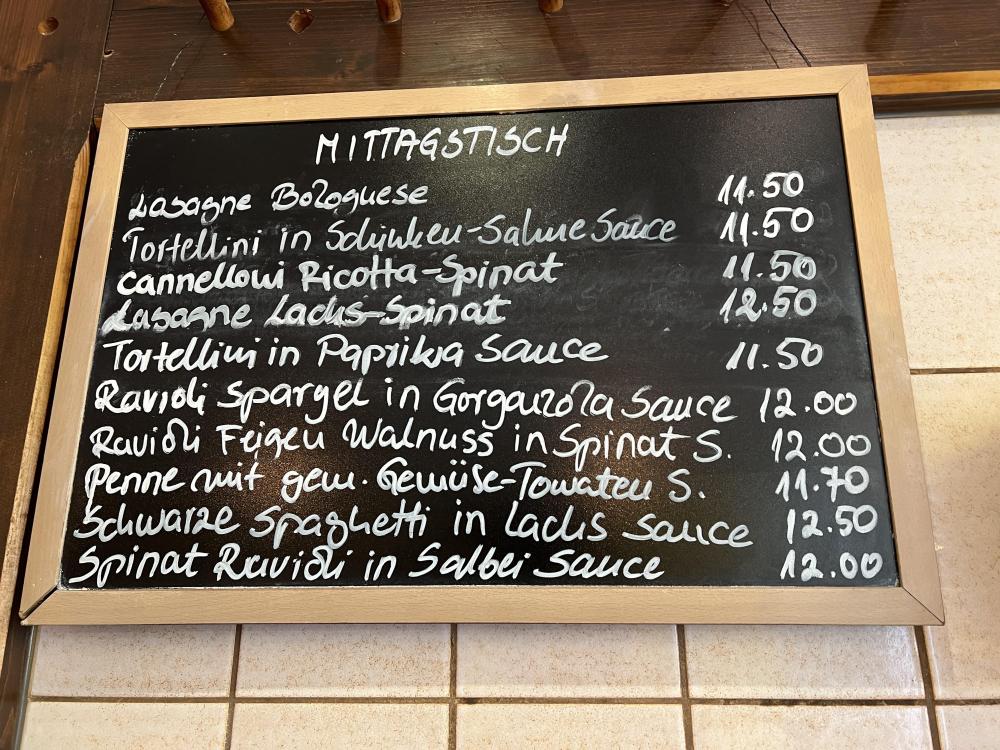 MITTAGSTISCH
Lasagne Bolognese 11.50
Tortellini in Schinken-Sahne Sauce 11.50
Cannelloni Ricotta-Spinat 11.50
Lasagne Lachs-Spinat 12.50
Tortellini in Paprika Sauce 11.50
Ravioli Spargel in Gorganzola Sauce 12.00
Ravioli Feigen Walnuss in Spinat S. 12.00
Penne mit gem. Gemüse-Tomaten S. 11.70
Schwarze Spaghetti in Lachs Sauce 12.50
Spinat Ravioli in Salbei Sauce 12.00